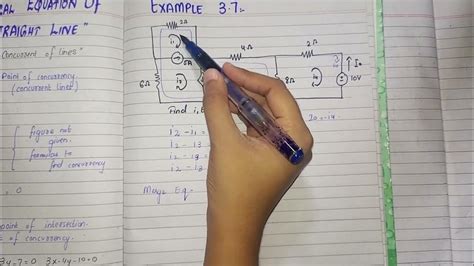 CAL EQUATION OF
STRAIGHT LINE"
Concurrent of lines"
Point of concurrency
(concurrent lines)
figure not
given
formulas to
find concurrency
= 0
point of intersection.
= of concurrency.
3x-4y-10=0
EXAMPLE 3.7:
2Ω
i1
5A
4Ω
2Ω
6Ω
8Ω
10V
Find i
i2 - i1 =
i2 - i3
i2 - i3 =
i2 - i3
Eq